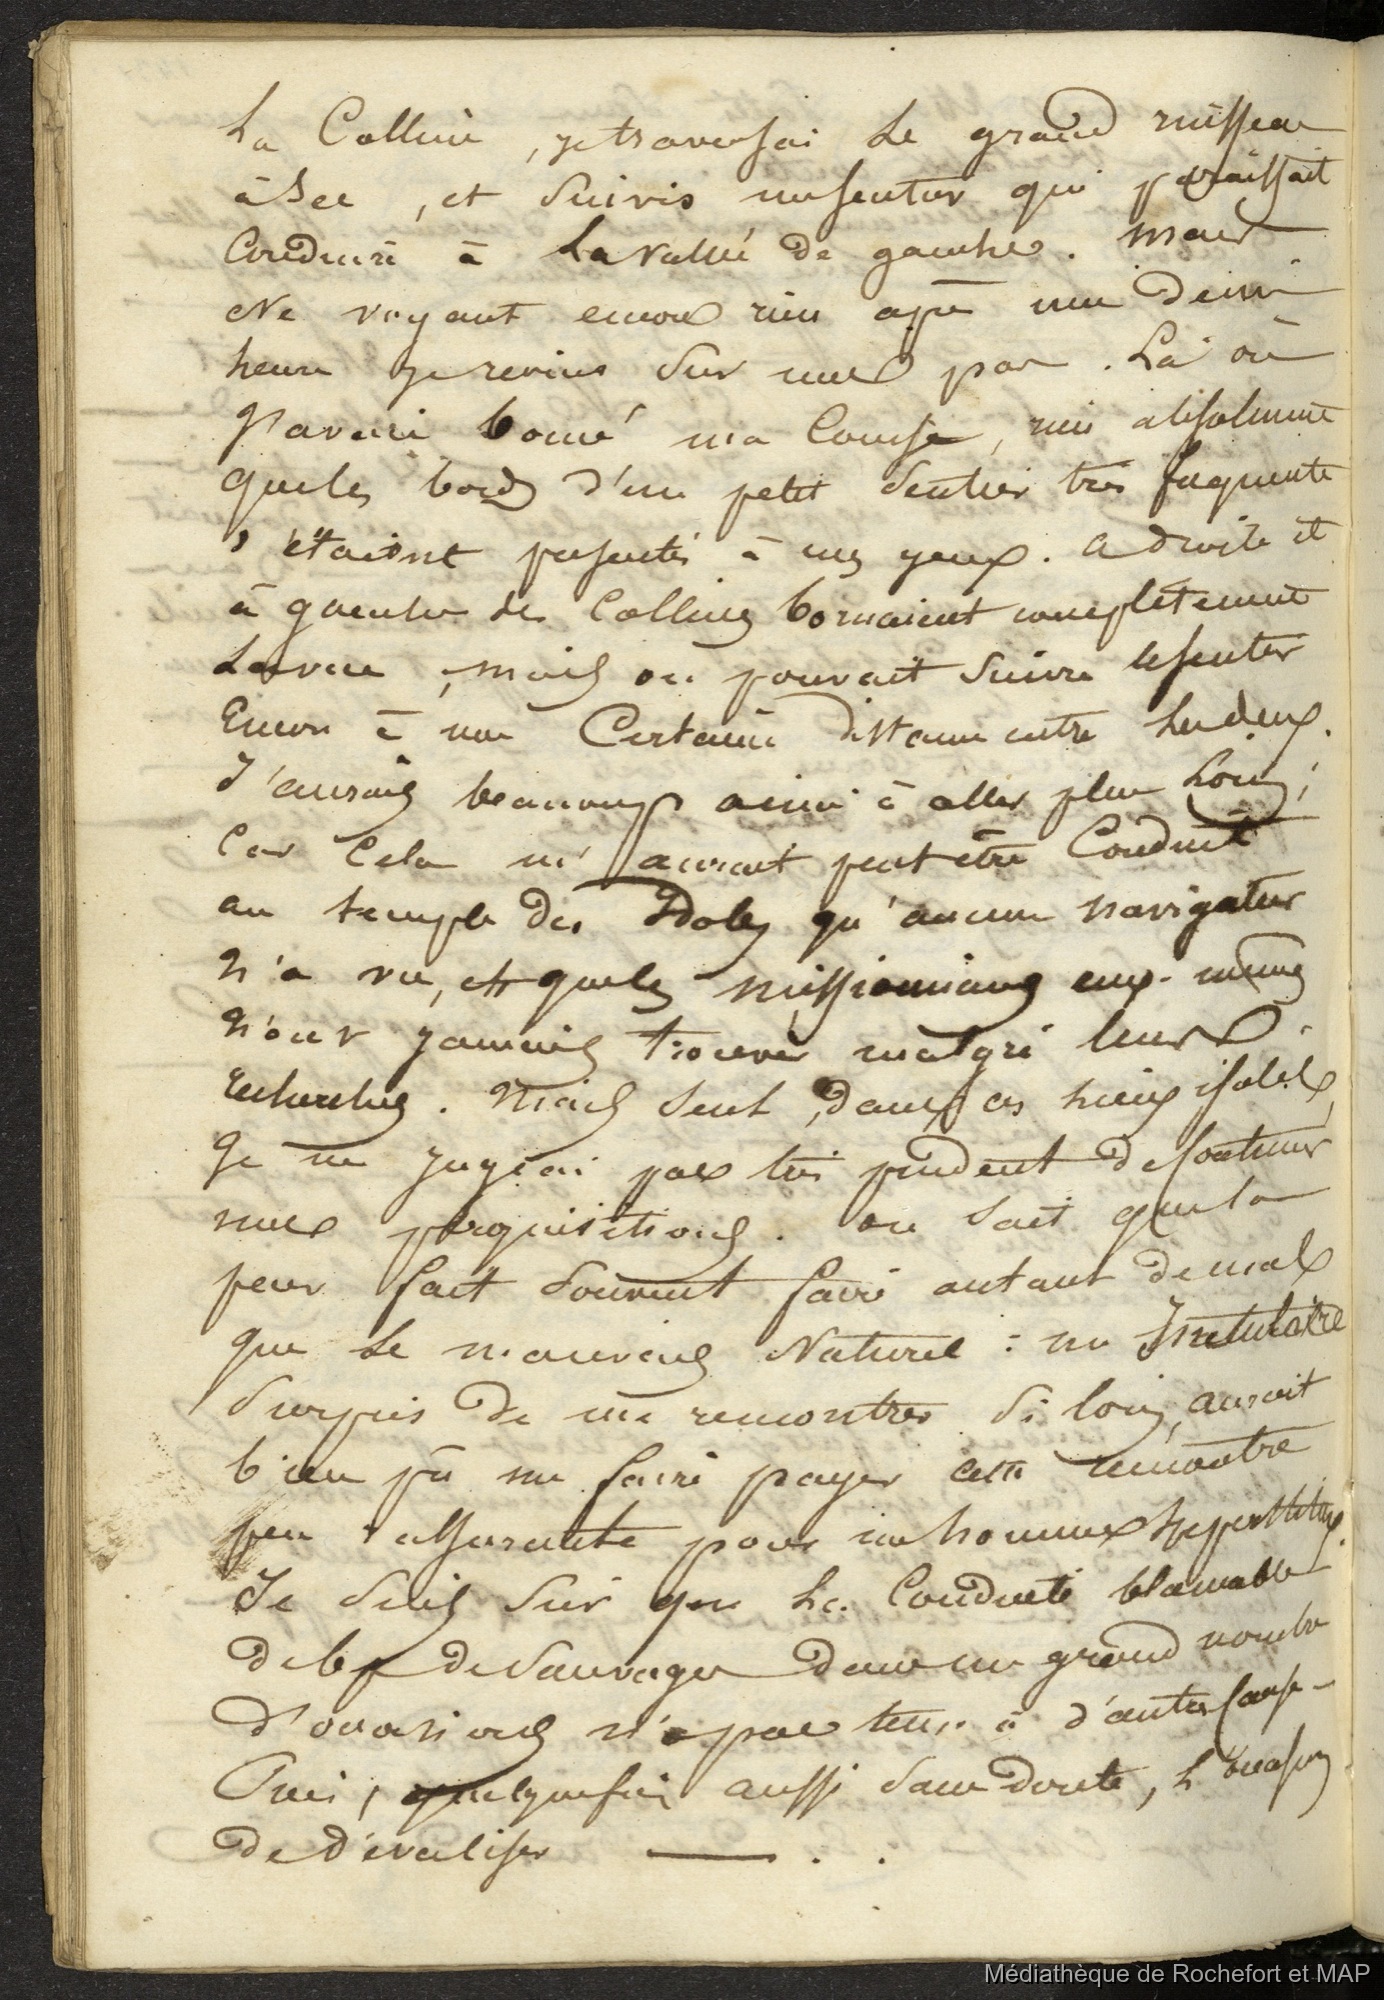 La Colline, je traversai le grand ruisseau
à sec, et suivis un sentier qui paraissait
Conduire à la vallée de gauche. Mais
Ne voyant encore rien après une demi
heure je revins sur mes pas. Là où
j'avais borné ma Course, rien absolument
que les bords d'un petit sentier très frequenté
s'étaient présentés à mes yeux. a droite et
à gauche des Collines bornaient complètement
la vue, mais on pouvait suivre le sentier
Encore à une Certaine distance entre les deux.
J'aurais beaucoup aimé à aller plus loin;
Car Cela m'aurait peut etre Conduit
au temple des Idoles qu'aucun navigateur
n'a vu, et que les missionnaires eux-mêmes
n'ont jamais trouvé malgré leurs
recherches. Mais seul, dans ces lieux isolés,
Je ne jugeai pas très prudent de continuer
mes perquisitions. on sait que la
peur fait souvent faire autant de mal
que le mauvais Naturel: un Insulaire
surpris de me rencontrer si loin, aurait
bien pû me faire payer cette rencontre
peu rassurante pour un homme superstitieux.
Je suis sûr que la Conduite blamable
de de sauvages dans un grand nombre
d'occasions n'a pas tenu à d'autre Cause.
Oui, quelquefois aussi sans doute, l'occasion
de dévaliser — . .
Médiathèque de Rochefort et MAP